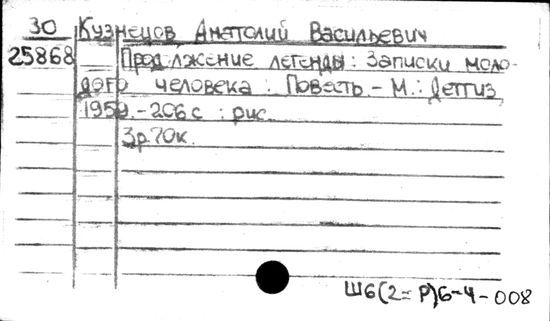 30 Кузнецов Анатолий Васильевич
25868 Продолжение легенды: Записки моло-
дого человека: Повесть.- М.: Детгиз,
1959.-206с.: рис.
3р.70к.
Ш6(2=Р)6-4-008